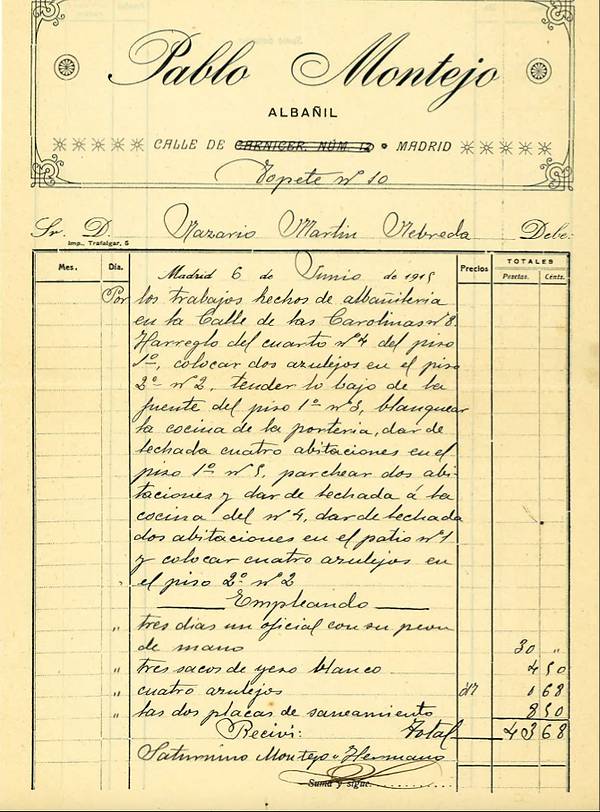 Pablo Montejo
ALBAÑIL
CALLE DE CARNICER, NÚM. 12 • MADRID
Topete nº 10
Sr. D. Nazario Martin Nebreda Debe:
Imp. Trafalgar, 5
Mes. Día. Madrid 6 de Junio de 1915 Precios TOTALES
Pesetas. Cents.
Por los trabajos hechos de albañileria
en la Calle de las Carolinas nº 8.
Harreglo del cuarto nº 4 del piso
1º, colocar dos azulejos en el piso
2º nº 2, tender lo bajo de la
fuente del piso 1º nº 3, blanquear
la cocina de la porteria, dar de
lechada cuatro abitaciones en el
piso 1º nº 5, parchear dos abi-
taciones y dar de lechada á la
cocina del nº 4, dar de lechada
dos abitaciones en el patio nº 1
y colocar cuatro azulejos en
el piso 2º nº 2
Empleando
" tres dias un oficial con su peon
de mano 30 "
" tres sacos de yeso blanco 4 50
" cuatro azulejos d17 0 68
" las dos placas de saneamiento 8 50
Recivi: Total 43 68
Saturnino Montejo y Hermano
Suma y sigue